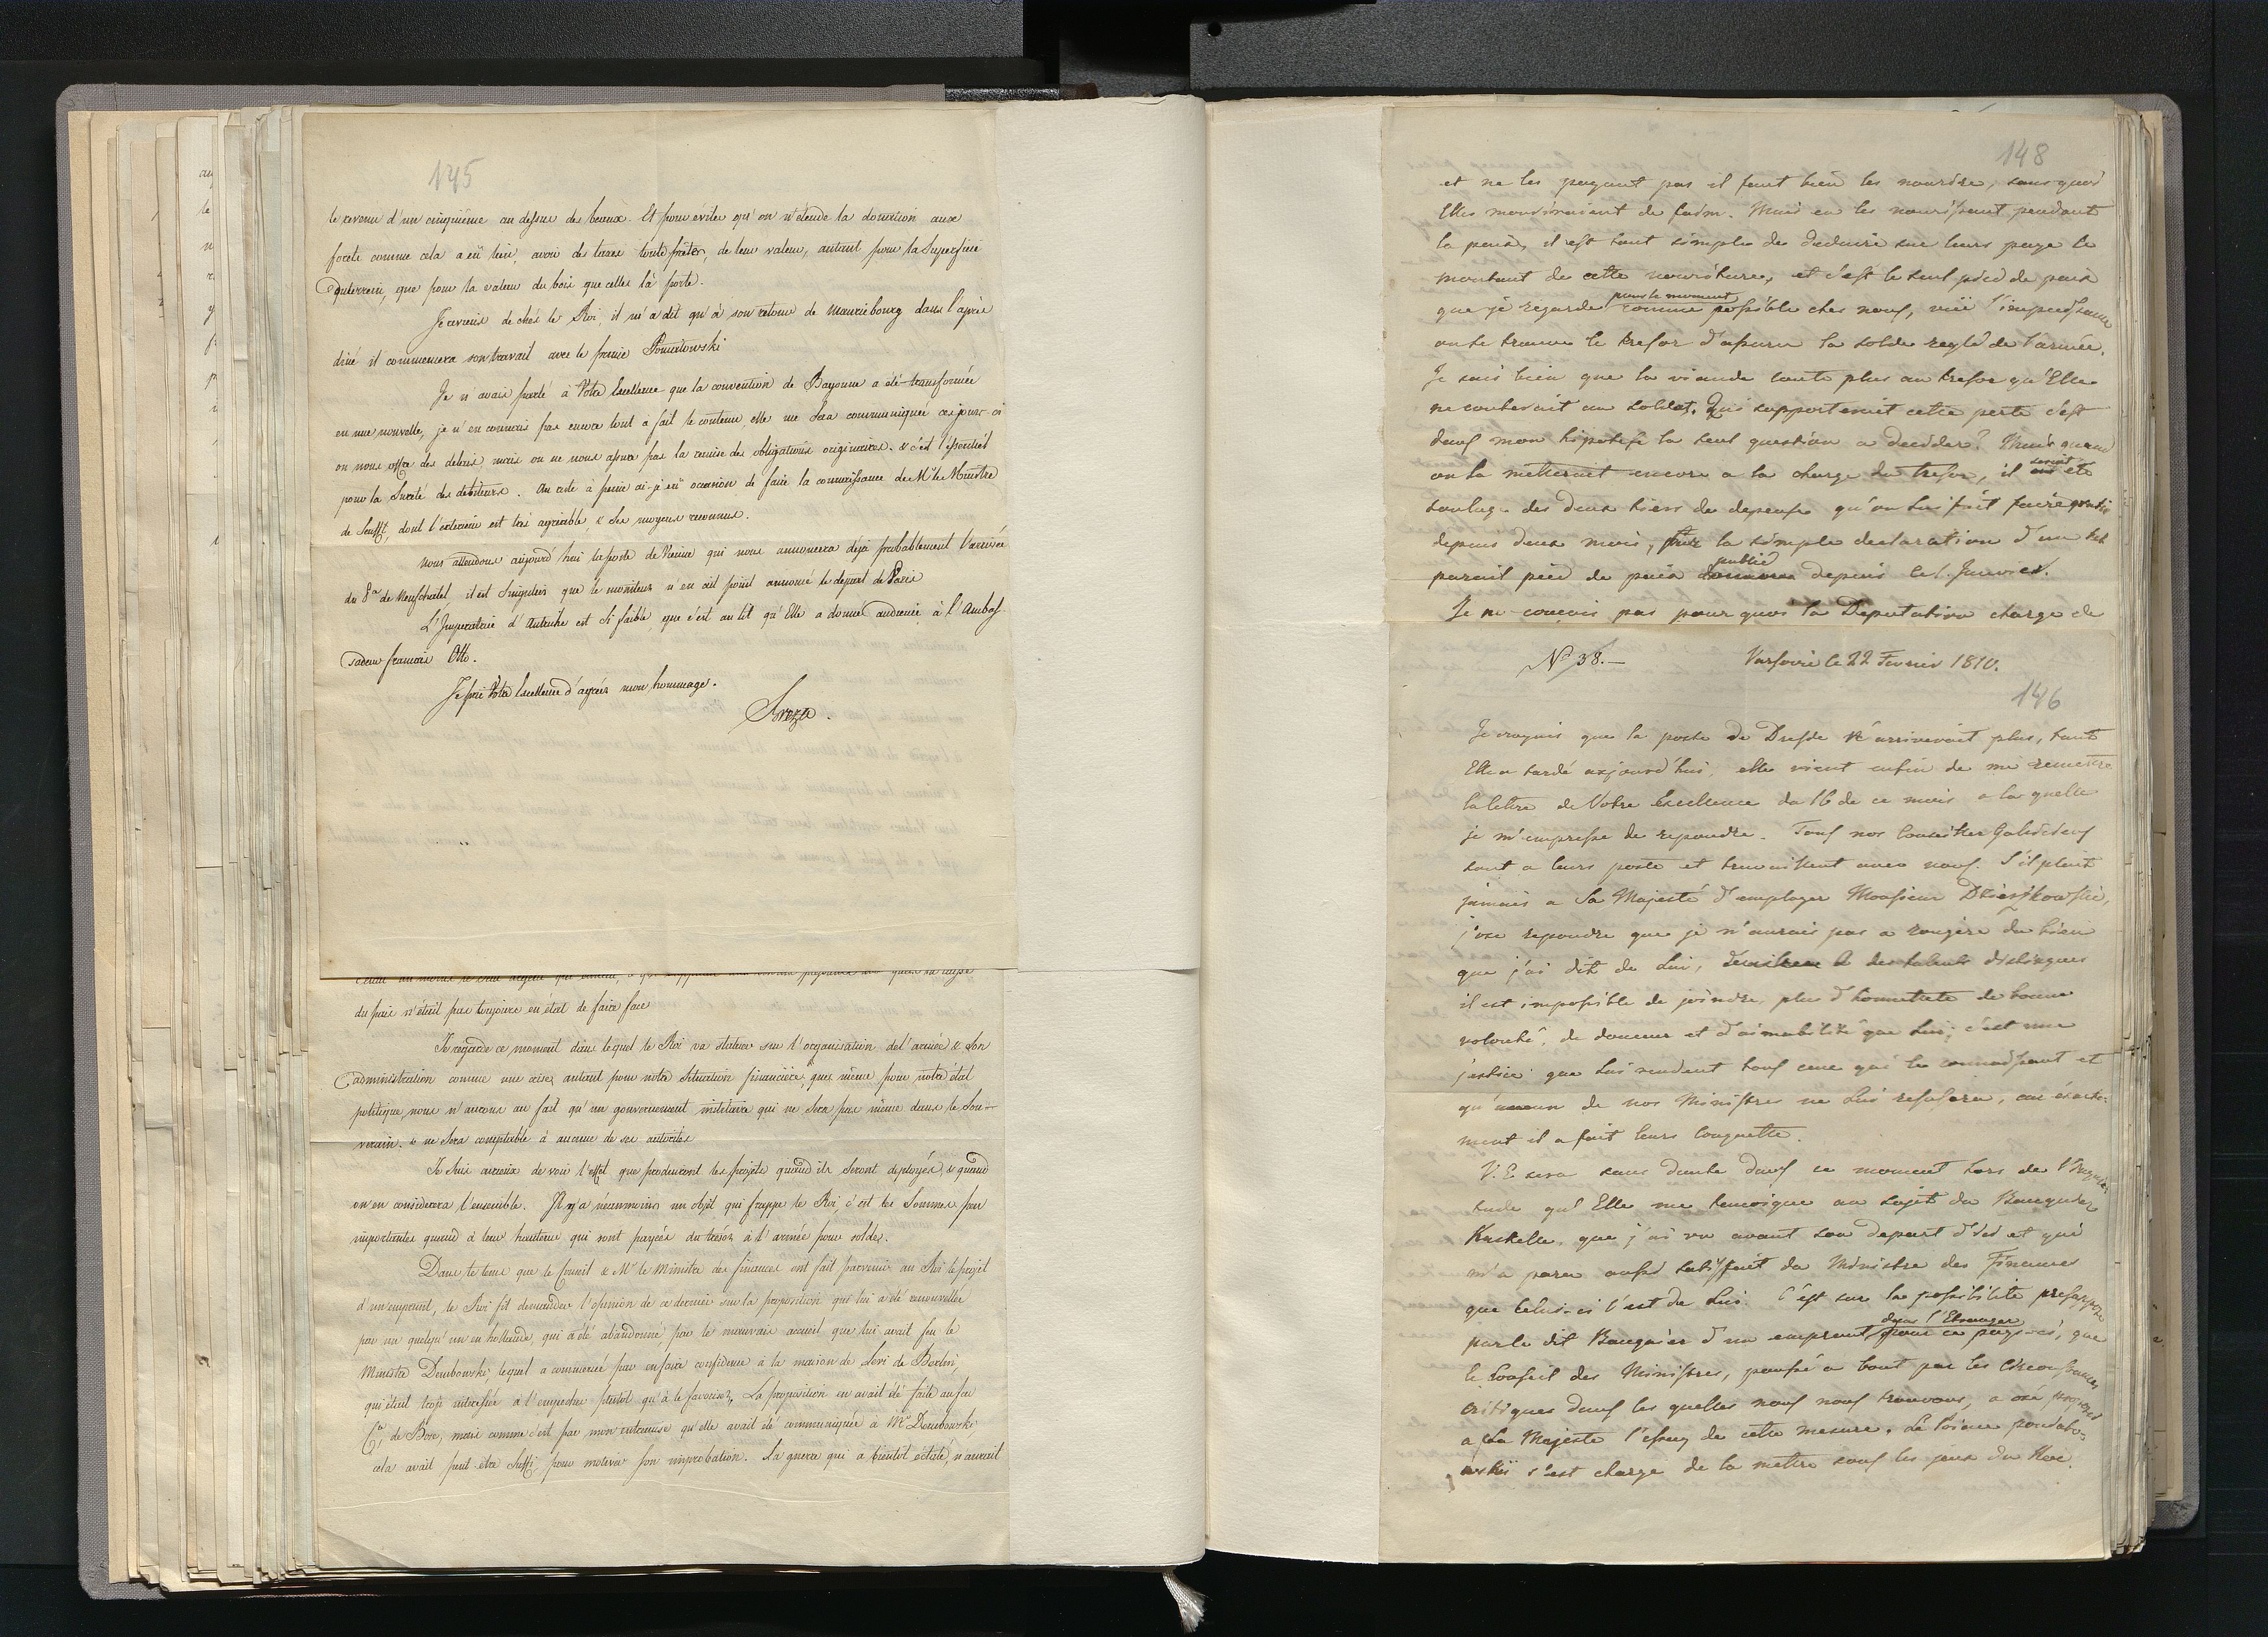 145
le revenu d'un cinquième au dessus des beaux. Et pour eviter qu'on n'étende la donation aux
forets comme cela a eû lieu, avoir des terres toute prêtes, de leur valeur, autant pour la superficie
du terrein, que pour la valeur du bois que celles là porte.
Je reviens de chés le Roi, il m'a dit qu'à son retour de Mauricbourg dans l'après
diné il commencera son travail avec le prince Poniatowski
Je n'avais parlé à Votre Excellence que la convention de Bayonne a été transformée
en une nouvelle, je n'en connois pas encore tout à fait le contenu, elle me sera communiquée ces jours-ci
on nous offre des delais, mais on ne nous assure pas la remise des obligations originaires. & c'est l'éssentiel
pour la sureté des debiteurs. Au reste à peine ai-je eû occasion de faire la connoissance de Mr le Ministre
de Senfft, dont l'exterieur est très agréable, & les moyens reconnus.
Nous attendons aujourd'hui la poste de Vienne qui nous annoncera déjà probablement l'arrivée
du Pce de Neufchatel. il est singulier que le moniteur n'en ait point annoncé le depart de Paris
L'Imperatrice d'Autriche est si faible, que c'est au lit qu'Elle a donné audience à l'Ambas-
sadeur francois Otto.
Je prie Votre Excellence d'agréer mon hommage.
Breza.
du païs n'étoit pas toujours en état de faire face
Je regarde ce moment dans lequel le Roi va statuer sur l'organisation de l'armée & son
administration comme une crise, autant pour notre situation financière, que même pour notre état
politique, nous n'aurons au fait qu'un gouvernement militaire qui ne sera pas même dans le Sou-
verain. & ne sera comptable à aucune de ses autorités
Je suis curieux de voir l'effet que produiront les projets quand ils seront deployés, & quand
on en considerera l'ensemble. Il y a néanmoins un objet qui frappe le Roi c'est les sommes peu
importantes quand à leur hauteur qui sont payées du trésor à l'armée pour solde.
Dans le tems que le Conseil & Mr le Ministre des finances ont fait parvenir au Roi le projet
d'un emprunt, le Roi fit demander l'opinion de ce dernier sur la proposition qui lui a été renouvellée
par un quelqu'un en hollande, qui a été abandonné par le mauvais accueil que lui avait fait le
Ministre Dembowski, lequel a commencé par en faire confidence à la maison de Levi de Berlin,
qui étoit trop interessée à l'empecher plutot qu'à le favoriser. La proposition en avait été faite au feu
Cte de Bose, mais comme c'est par mon entremise qu'elle avait été communiquée à Mr Dembowski
cela avait peut-etre suffi pour motiver son improbation. La guerre qui a bientôt éclaté, n'aurait
148
et ne les payant pas il faut bien les nourire, sans quoi
Elles mourroraient de faim. Mais en les nourissant pendant
la paix, il est tout simple de deduire sur leurs paye le
montant de cette nouriture, et c'est le seul pied de paix
que je regarde pour le moment comme possible chez nous, vuë l'impuissance
ou se trouve le tresor d'assurer la solde reglé de l'armée.
Je sais bien que la viande coute plus au tresor qu'Elle
ne couterait au soldat. Qui supporteroit cette perte c'est
dans mon hipotese la seul question a decider? Mais quand
on la metteroit encore a la charge du tresor, il seroit ete
soulagé des deux tiers de depense qu'on lui fait faire
depuis deux mois, par la simple declaration d'un
pareil pied de paix publié depuis le 1. Janvier.
Je ne conçois pas pourquoi la Deputation chargé de
No 38.— Varsovie le 22 Fevrier 1810.
146
Je croyois que la poste de Dresde n'arriveroit plus, tant
Elle a tardé aujourd'hui, elle vient enfin de me remettre
la lettre de Votre Excellence du 16 de ce mois a la quelle
je m'empresse de repondre. Tous nos Conseiller Galiciens
sont a leurs poste et travaillent avec nous. S'il plait
jamais a Sa Majesté d'employer Monsieur Dzierzkowski,
j'ose repondre que je n'aurais pas a rougir du bien
que j'ai dit de Lui, a des talents distingues
il est impossible de joindre plus d'honnetete de bonne
volonté, de douceur et d'aimabilité que Lui; c'est une
justice que Lui rendent tous ceux qui le connoissent et
qu'aucun de nos Ministres ne Lui refusera, car exacte-
ment il a fait leurs conquette.
V. E. sera sans doute dans ce moment hors de l'Inquie-
tude qu'Elle me temoigne au sujet du Banquier
Kaskelle, que j'ai vu avant son depart d'ici et qui
m'a paru aussi satisfait du Ministre des Finances
que Celui-ci l'est de Lui. C'est sur la possibilité presupposé
par le dit Banquier d'un emprunt dans l'Etranger pour ce pays-ci, que
le Conseil des Ministres, poussé a bout par les Circonstances
critiques dans les quelles nous nous trouvons, a osé proposer
a Sa Majesté l'essay de cette mesure. Le Prince Poniato-
wski s'est chargé de la mettre sous les yeux du Roi.